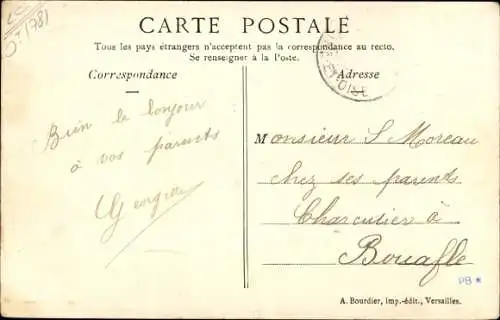 CARTE POSTALE
Tous les pays étrangers n'acceptent pas la correspondance au recto.
Se renseigner à la Poste.
Correspondance
Adresse
Bien le bonjour
à vos parents
Monsieur S Moreau
chez ses parents
Charcutier à
Bouafle
PB *
A. Bourdier, imp.-édit., Versailles.